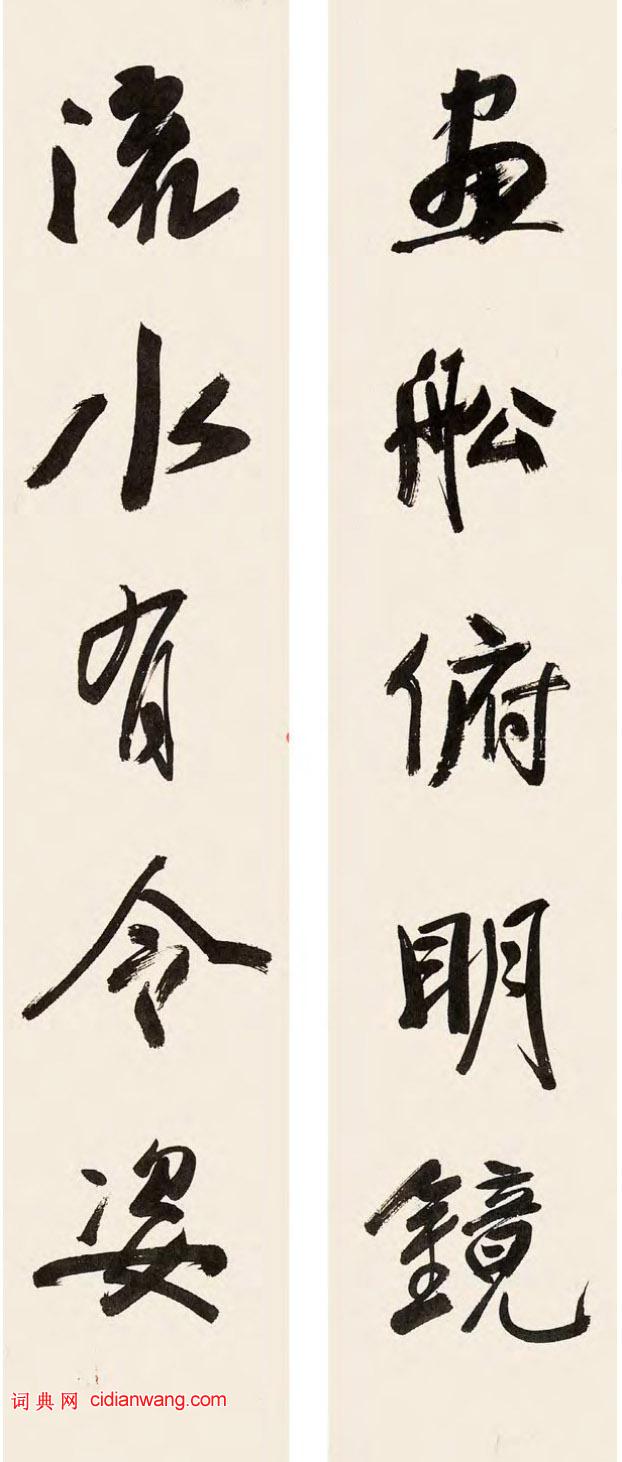 画舩俯明鏡
流水有令姿
词典网 cidianwang.com